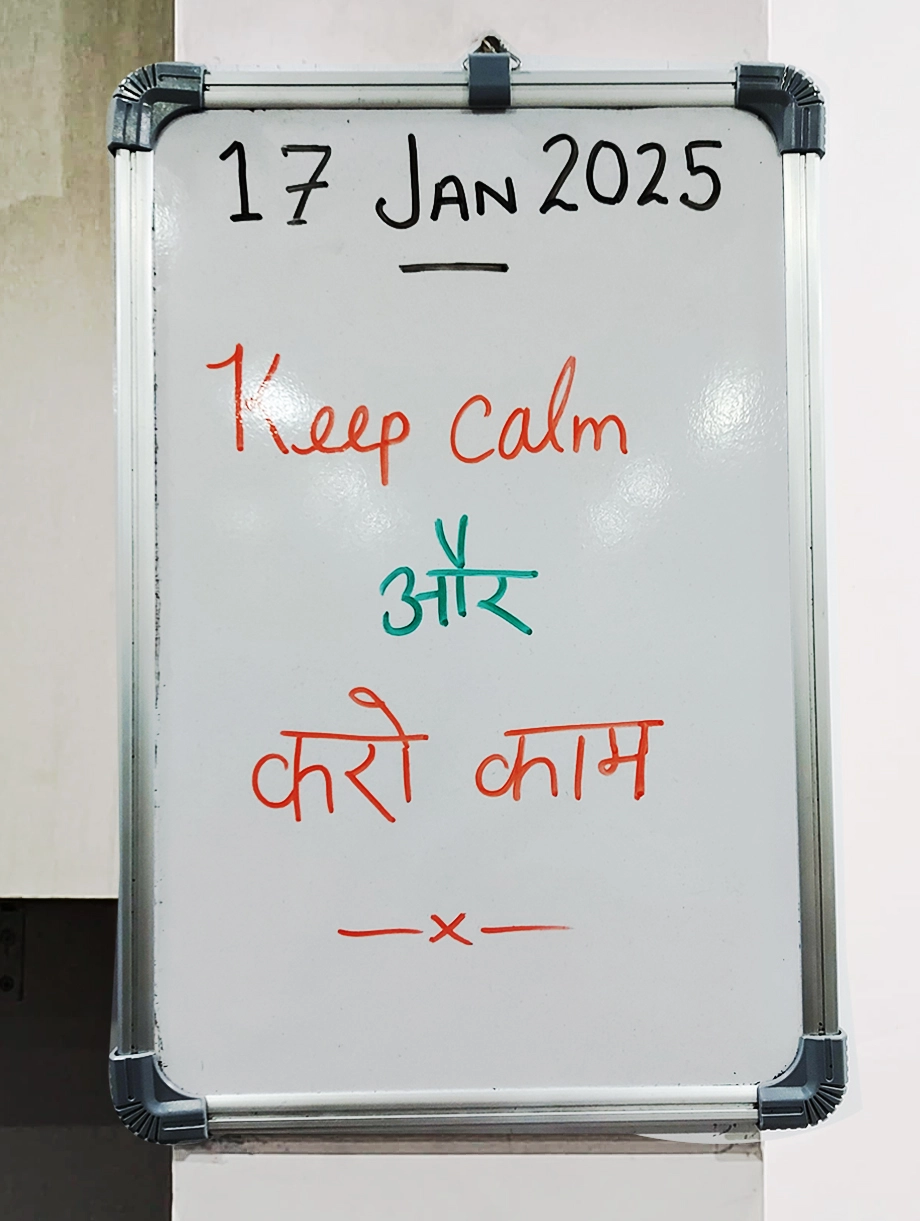 17 JAN 2025
Keep calm
और
करो काम
—x—